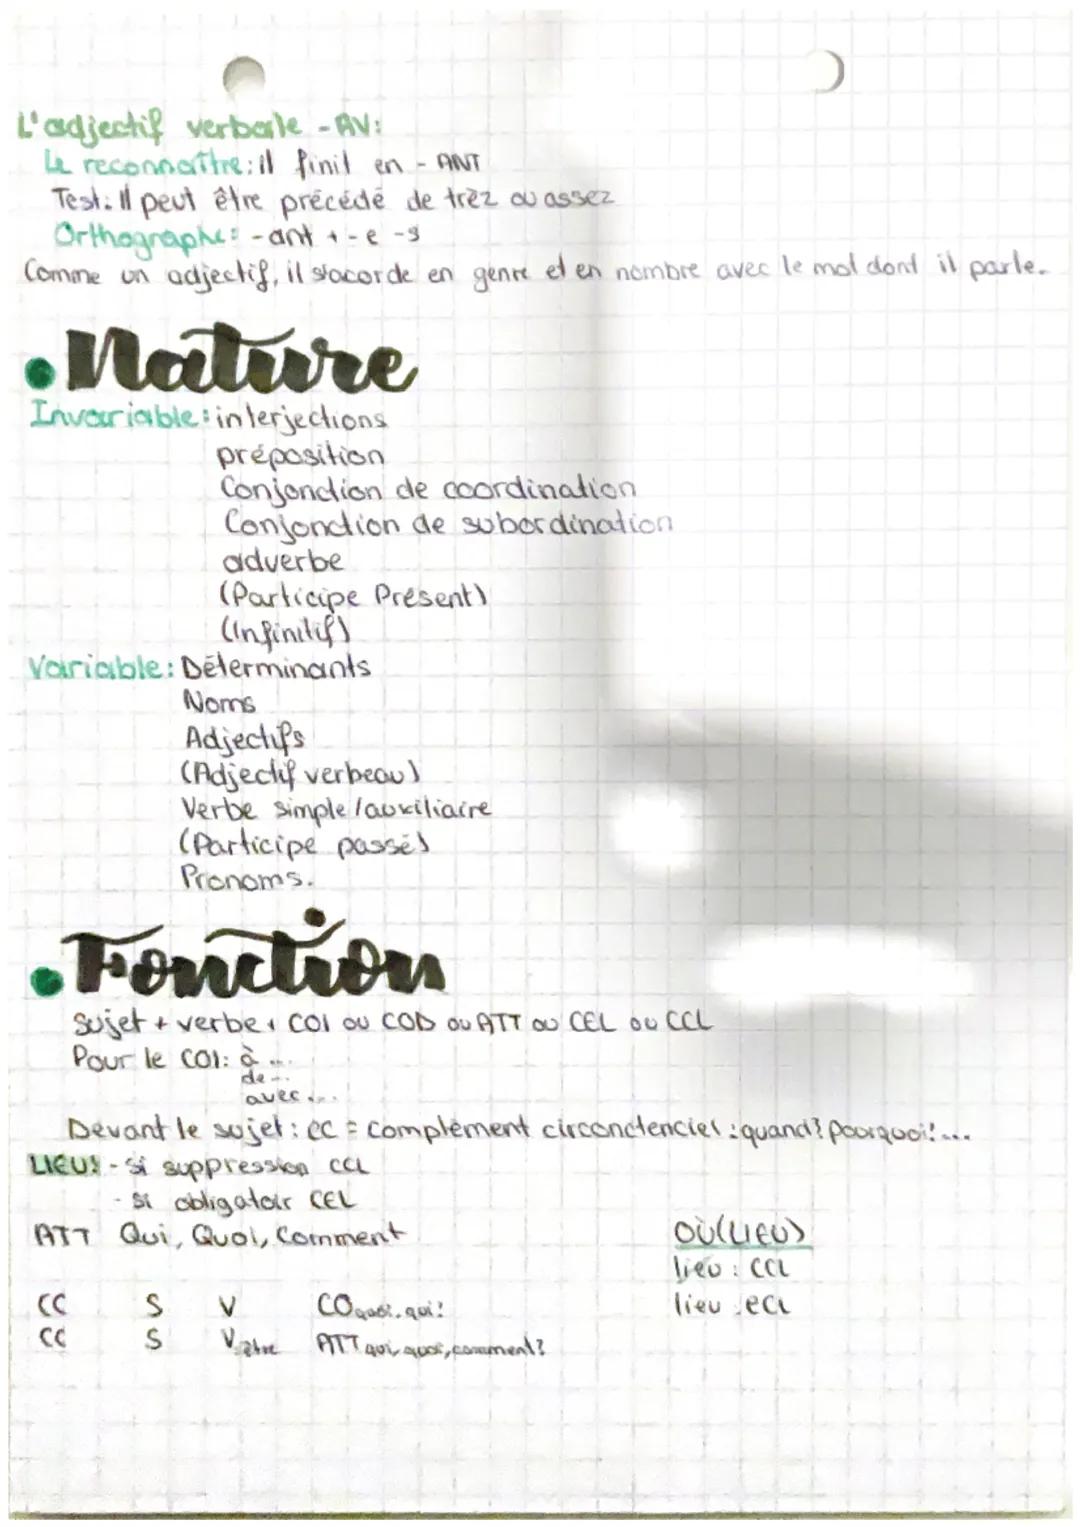 L'adjectif verbale - AV:
Le reconnaître: il finit en - ANT
Test: Il peut être précédé de trèz ou assez
Orthographe: -ant + -e -s
Comme un adjectif, il s'acorde en genre et en nombre avec le mot dont il parle.
• Nature
Invariable: interjections
préposition
Conjonction de coordination
Conjonction de subordination
adverbe
(Participe Présent)
(Infinitif)
Variable: Déterminants
Noms
Adjectifs
(Adjectif verbeau)
Verbe simple/auxiliaire
(Participe passé)
Pronoms.
• Fonction
Sujet + verbe + COI ou COD ou ATT ou CEL ou CCL
Pour le COI: à ...
de ...
avec ...
Devant le sujet: CC = complément circonctenciel: quand? pourquoi? ...
LIEU: - Si suppression CCL
- Si obligatoir CEL
ATT Qui, Quoi, Comment
OÙ (LIEU)
lieu: CCL
CC S V CO quoi, qui?
lieu: eCL
CC S V être ATT qui, quoi, comment?